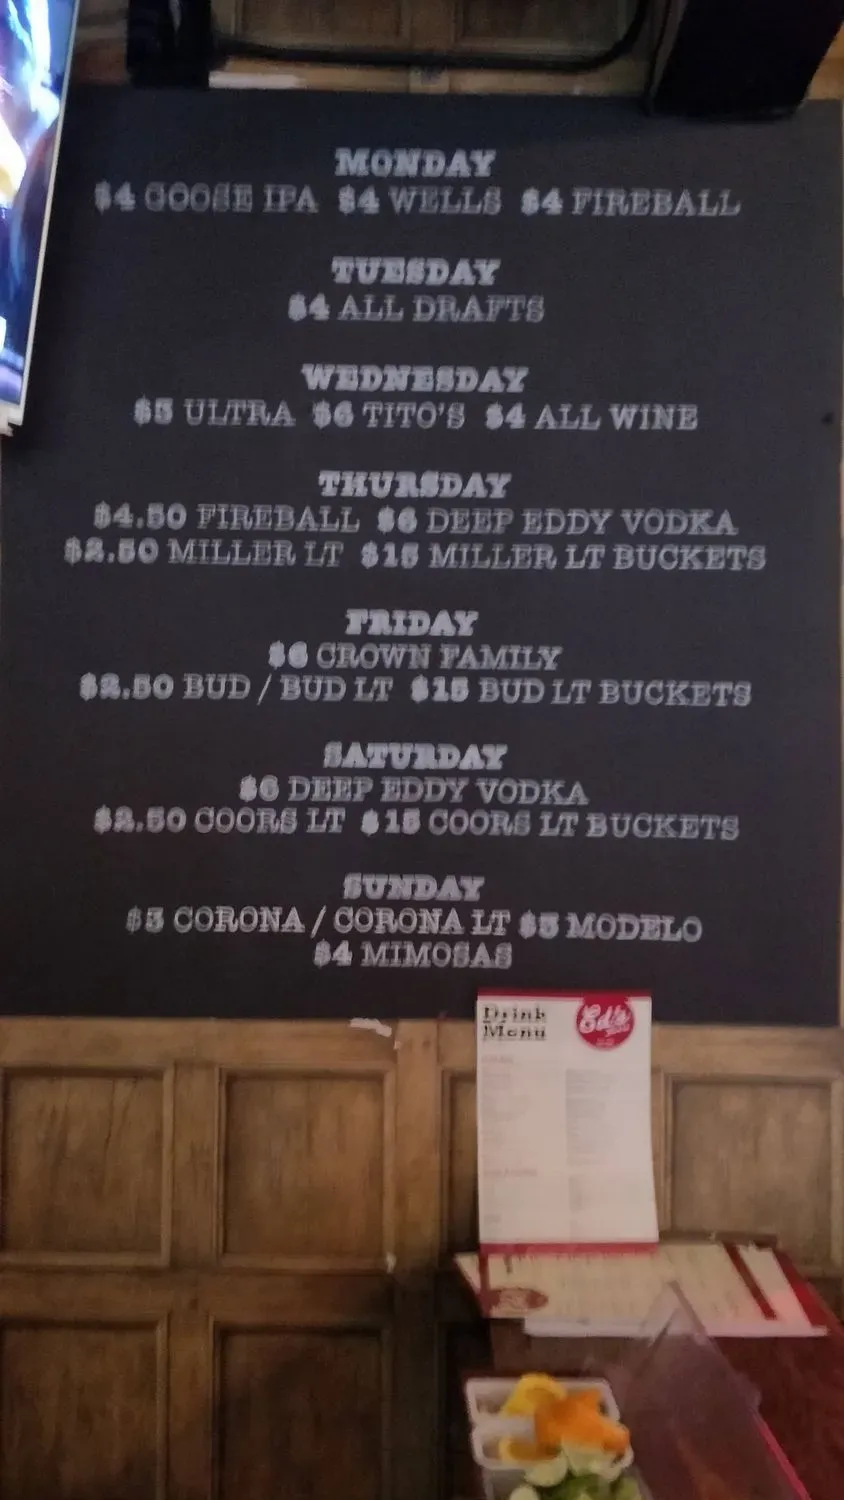 MONDAY
$4 GOOSE IPA $4 WELLS $4 FIREBALL
TUESDAY
$4 ALL DRAFTS
WEDNESDAY
$5 ULTRA $6 TITO'S $4 ALL WINE
THURSDAY
$4.50 FIREBALL $6 DEEP EDDY VODKA
$2.50 MILLER LT $15 MILLER LT BUCKETS
FRIDAY
$6 CROWN FAMILY
$2.50 BUD / BUD LT $15 BUD LT BUCKETS
SATURDAY
$6 DEEP EDDY VODKA
$2.50 COORS LT $15 COORS LT BUCKETS
SUNDAY
$3 CORONA / CORONA LT $3 MODELO
$4 MIMOSAS
Drink
Menu
Ed's